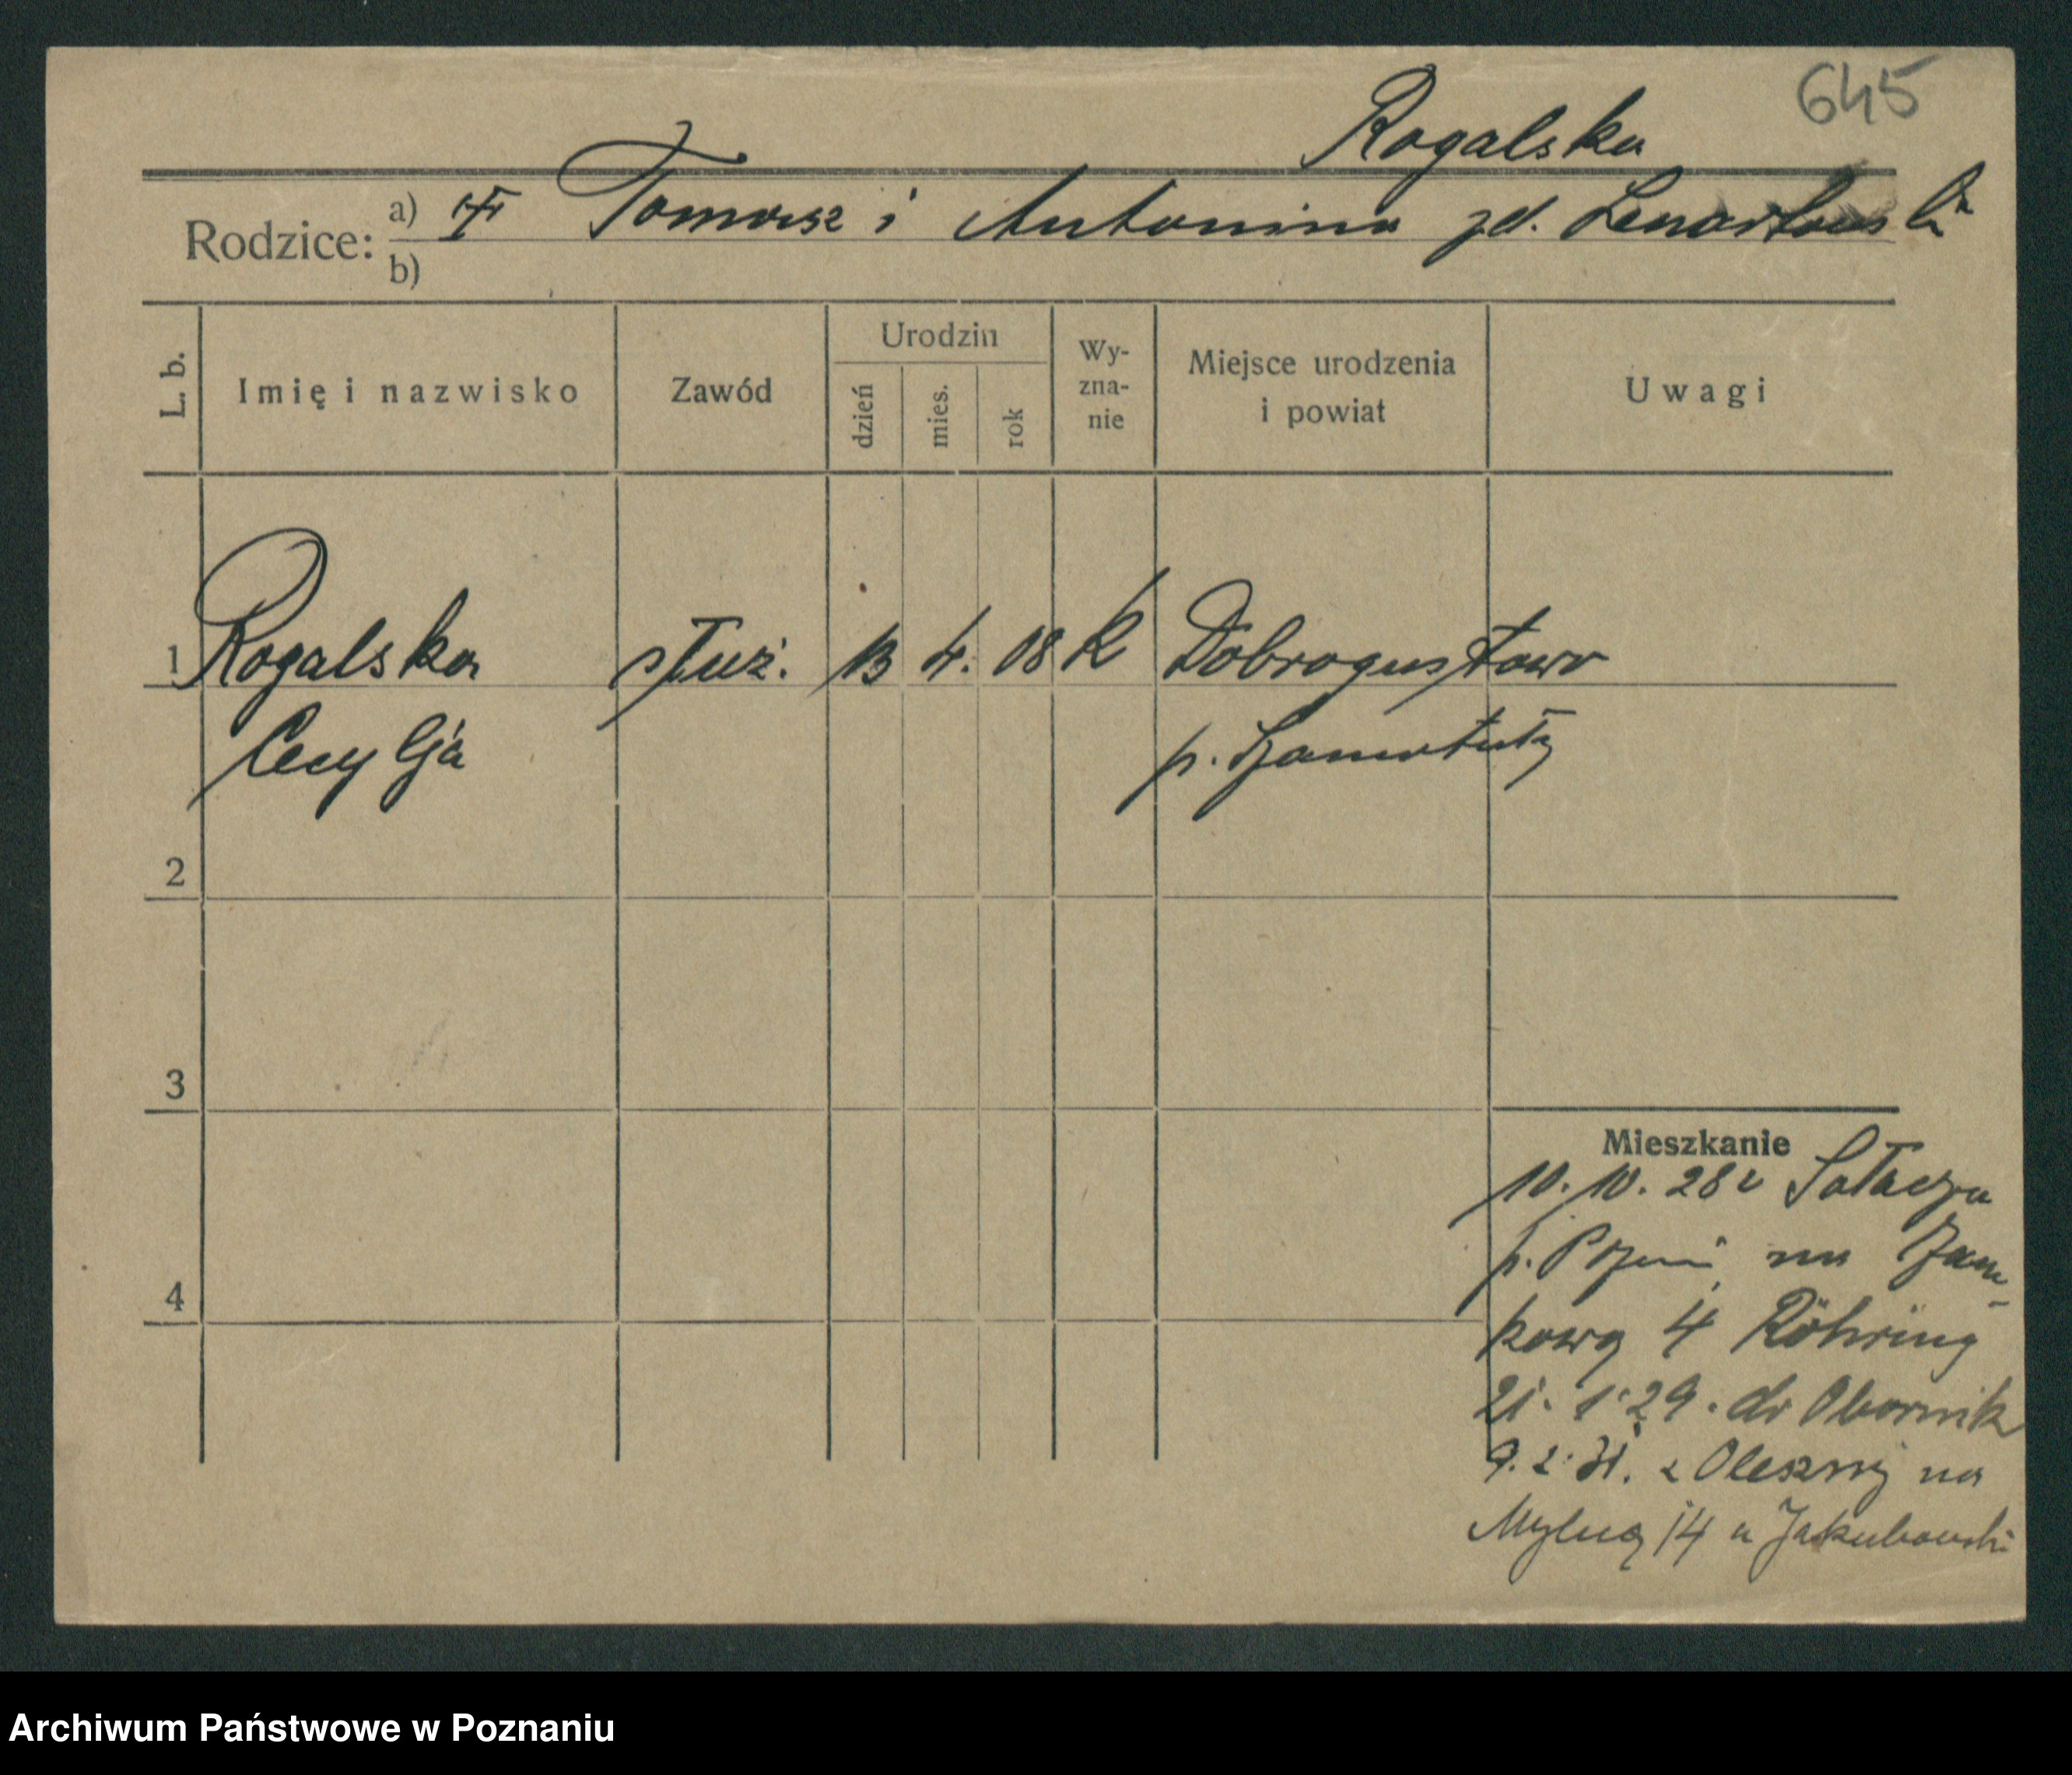 645
Rogalska
Rodzice: a) Tomasz i Antonina zd. Lenartowska
b)
L. b.
Imię i nazwisko
Zawód
Urodzin
dzień
mies.
rok
Wy-
zna-
nie
Miejsce urodzenia
i powiat
Uwagi
1 Rogalska służ. 13 4. 08 K Dobrogustowo
Cecylja p. Szamotuły
2
3
4
Mieszkanie
10. 10. 28 z Sołacza
p. Pozn. na Zam-
kową 4 Röhring
21. 1. 29. do Obornik
9. 2. 31. z Oleszny na
Mylną 14 u Jakubowski
Archiwum Państwowe w Poznaniu